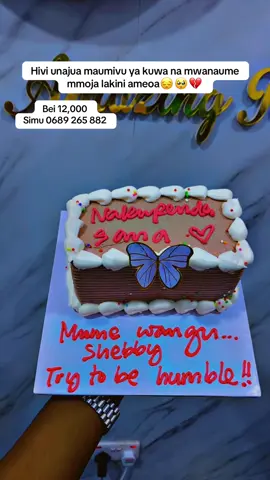 Hivi unajua maumivu ya kuwa na mwanaume
mmoja lakini ameoa😔🥺💔
Bei 12,000
Simu 0689 265 882
Nakupenda
sana
Mume wangu...
Shebby
Try to be humble!!